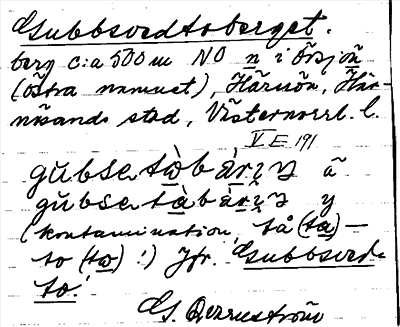 Gubbsvedtoberget.
berg c:a 500 m NO n i Örsjön
(östra namnet), Härnön, Här-
nösands stad, Västernorrl. l.
V E 191
gŭbsetàbárɩ̨ȝ ä
gŭbsetàbárɩ̨ȝ y
(kontamination, tå (ta) —
to (to)!) Jfr. Gubbsved-
to!